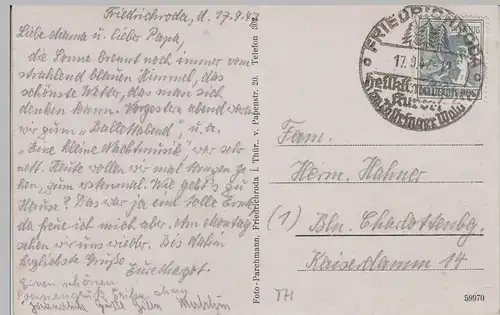 Friedrichroda, d. 17.9.47
Liebe Mama u. lieber Papa,
die Sonne brennt noch immer vom
strahlend blauen Himmel, das
schönste Wetter, das man sich
denken kann. Vorgestern abend waren
wir zum "Ballettabend", u.a.
"Eine kleine Nachtmusik" war sehr
nett. Heute wollen wir mal singen ge-
hen, zum erstenmal. Wie geht's zu
Hause? Das war ja eine tolle Ernte
da freue ich mich aber. Am Montag
sehen wir uns wieder. Bis dahin
herzlichste Grüße
Eure Margot.
Einen schönen
Sonnengruß
Foto-Parchmann, Friedrichroda i. Thür., v. Papenstr. 20, Telefon 392
FRIEDRICHRODA
17.9.47
Heilklimatischer
Kurort
Im Thüringer Wald
Fam.
Herm. Hahner
(1) Bln. Charlottenbg.
Kaiserdamm 14
TH
59970